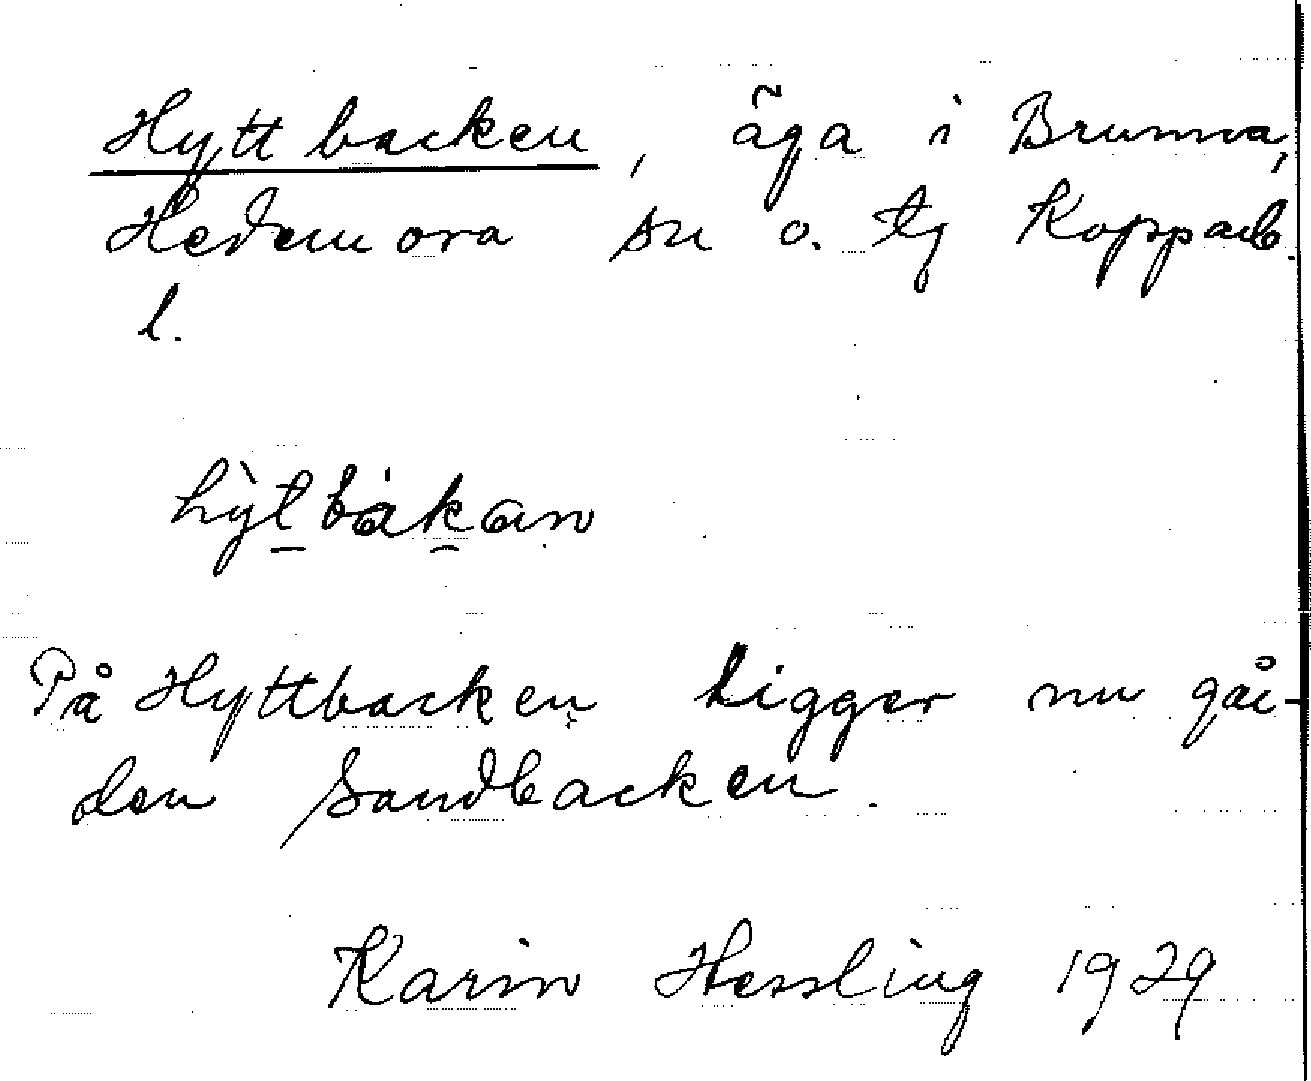 Hyttbacken, äga i Brunna,
Hedemora sn o. tg Kopparb.
l.
hỳtbákan
På Hyttbacken ligger nu går-
den Sandbacken.
Karin Hessling 1929